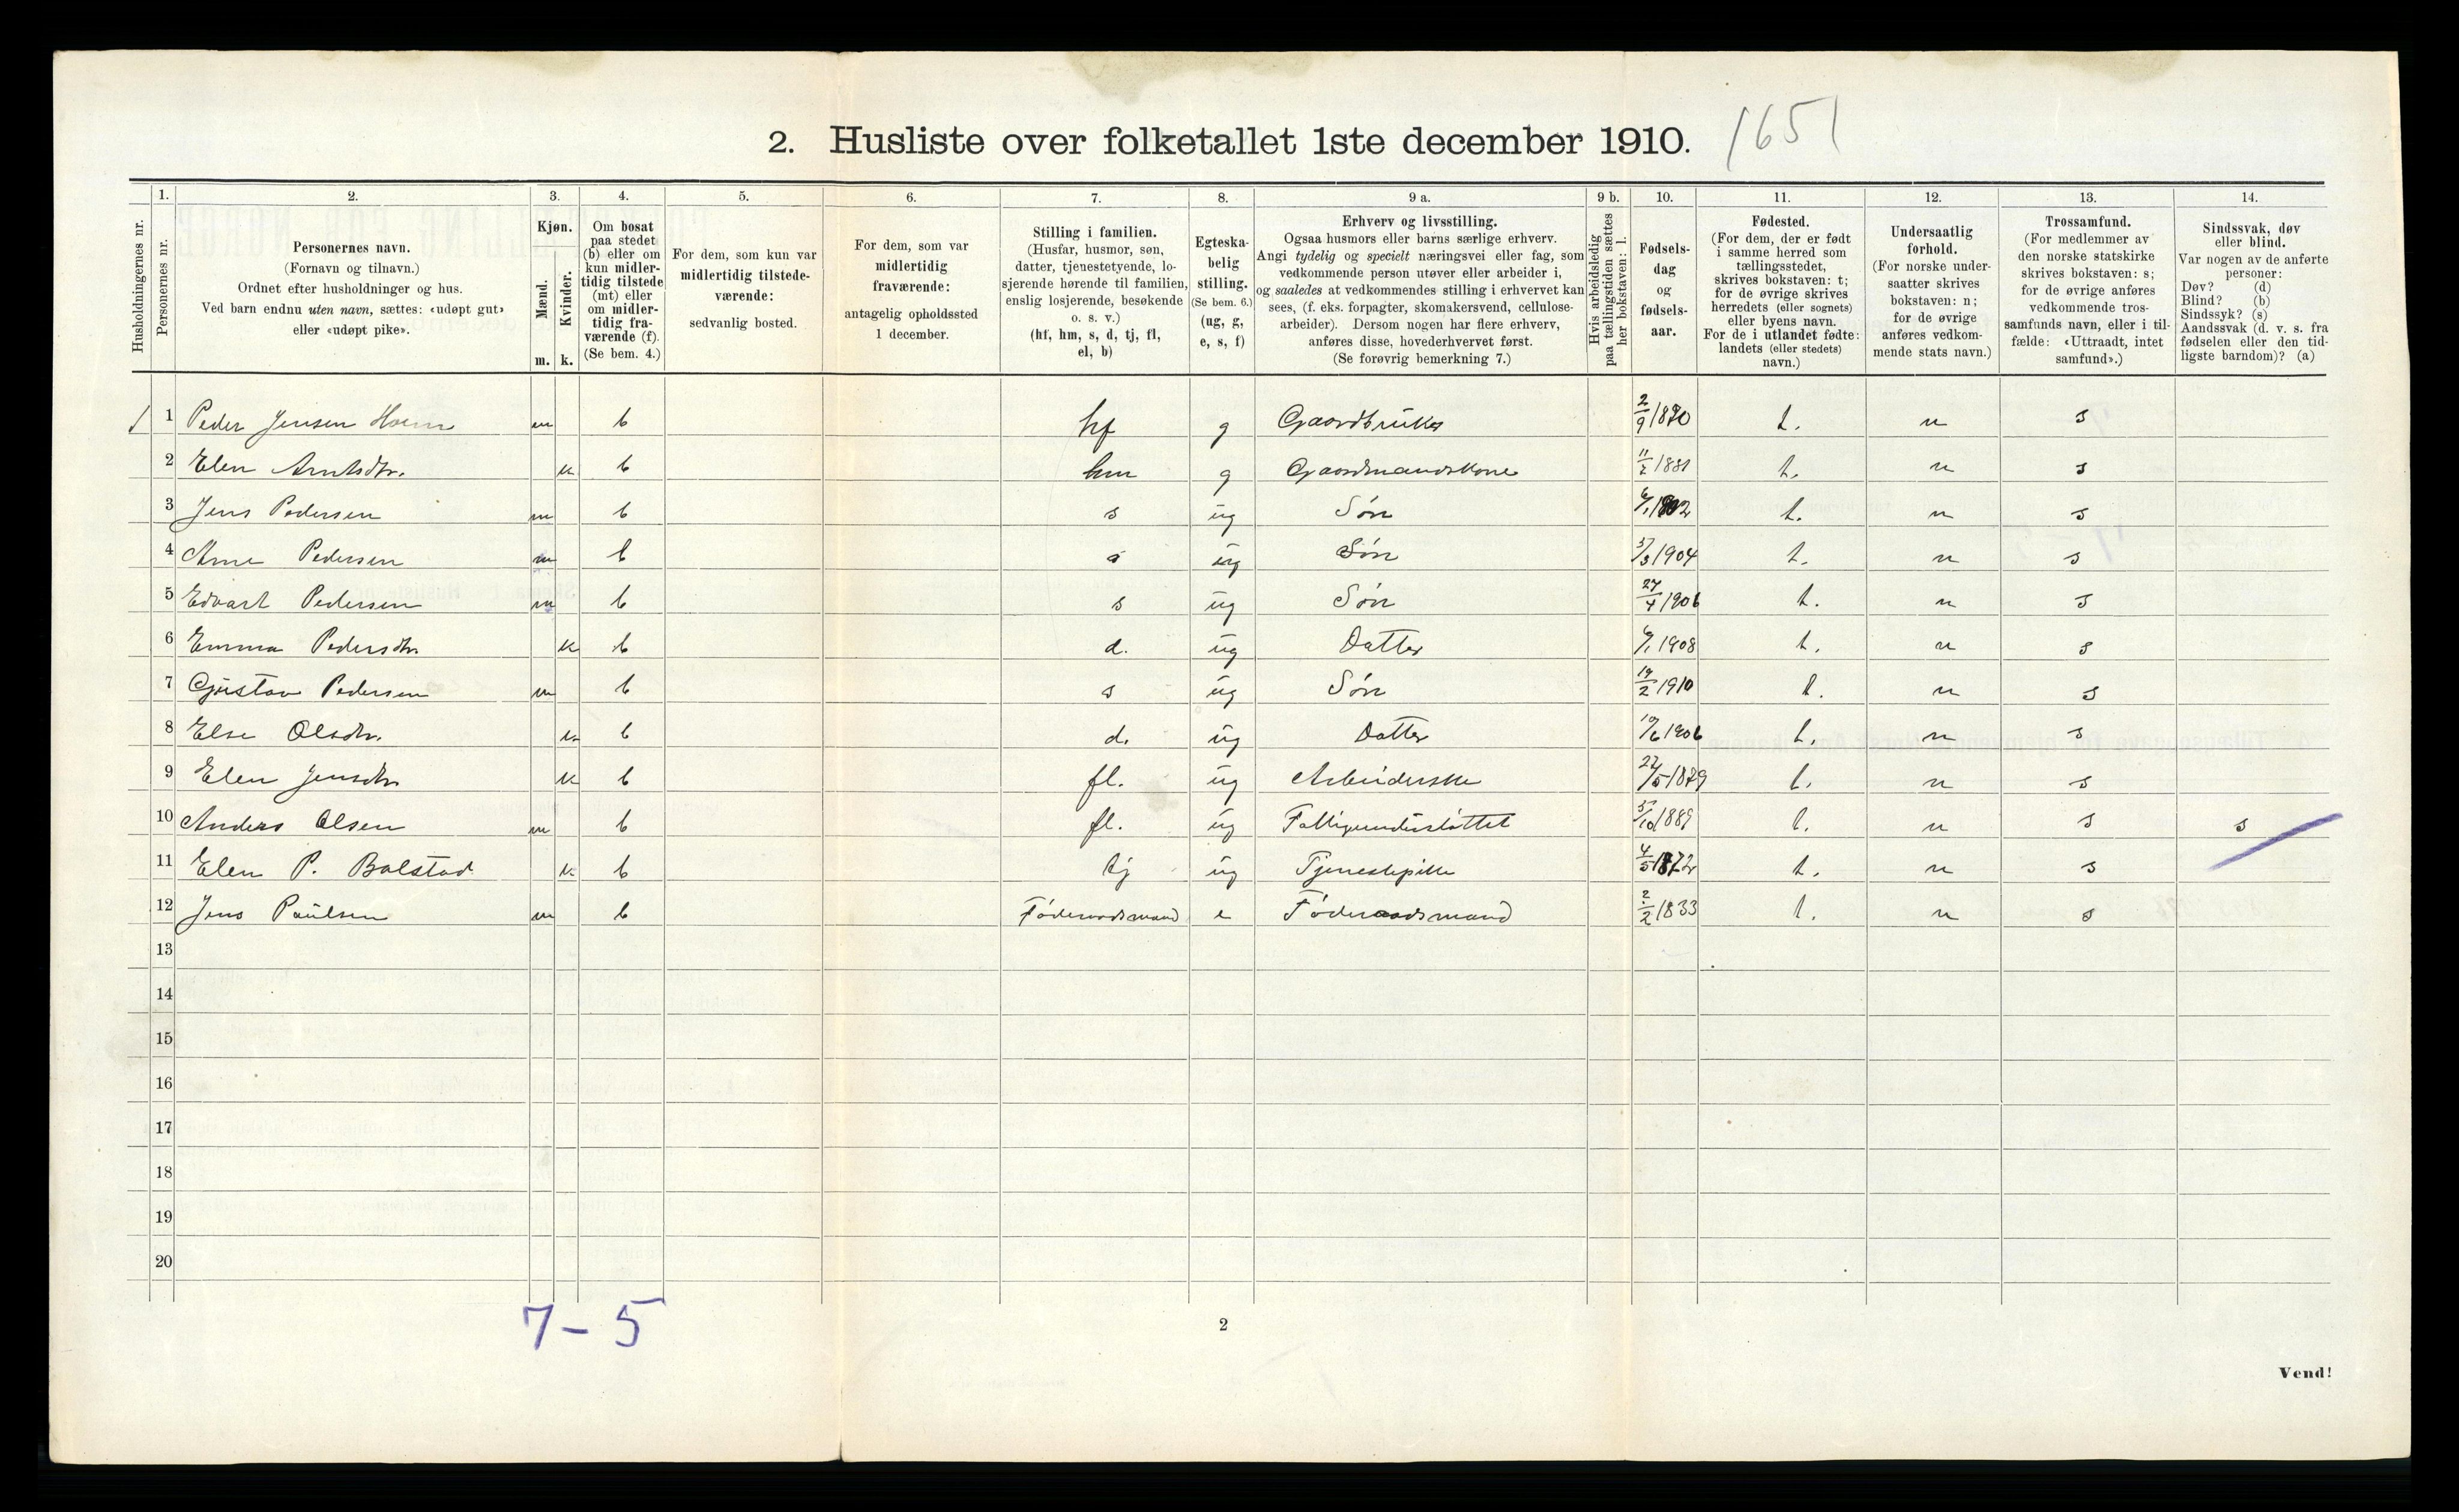 2. Husliste over folketallet 1ste december 1910. 1651
1. 2. 3. 4. 5. 6. 7. 8. 9 a. 9 b. 10. 11. 12. 13. 14.
Husholdningernes nr.
Personernes nr.
Personernes navn.
(Fornavn og tilnavn.)
Ordnet efter husholdninger og hus.
Ved barn endnu uten navn, sættes: «udøpt gut»
eller «udøpt pike».
Kjøn.
Mænd.
Kvinder.
m. k.
Om bosat
paa stedet
(b) eller om
kun midler-
tidig tilstede
(mt) eller
om midler-
tidig fra-
værende (f).
(Se bem. 4.)
For dem, som kun var
midlertidig tilstede-
værende:
sedvanlig bosted.
For dem, som var
midlertidig
fraværende:
antagelig opholdssted
1 december.
Stilling i familien.
(Husfar, husmor, søn,
datter, tjenestetyende, lo-
sjerende hørende til familien,
enslig losjerende, besøkende
o. s. v.)
(hf, hm, s, d, tj, fl,
el, b)
Egteska-
belig
stilling.
(Se bem. 6.)
(ug, g,
e, s, f)
Erhverv og livsstilling.
Ogsaa husmors eller barns særlige erhverv.
Angi tydelig og specielt næringsvei eller fag, som
vedkommende person utøver eller arbeider i,
og saaledes at vedkommendes stilling i erhvervet kan
sees, (f. eks. forpagter, skomakersvend, cellulose-
arbeider). Dersom nogen har flere erhverv,
anføres disse, hovederhvervet først.
(Se forøvrig bemerkning 7.)
Hvis arbeidsledig
paa tællingstiden sættes
her bokstaven: l.
Fødsels-
dag
og
fødsels-
aar.
Fødested.
(For dem, der er født
i samme herred som
tællingsstedet,
skrives bokstaven: t;
for de øvrige skrives
herredets (eller sognets)
eller byens navn.
For de i utlandet fødte:
landets (eller stedets)
navn.)
Undersaatlig
forhold.
(For norske under-
saatter skrives
bokstaven: n;
for de øvrige
anføres vedkom-
mende stats navn.)
Trossamfund.
(For medlemmer av
den norske statskirke
skrives bokstaven: s;
for de øvrige anføres
vedkommende tros-
samfunds navn, eller i til-
fælde: «Uttraadt, intet
samfund».)
Sindssvak, døv
eller blind.
Var nogen av de anførte
personer:
Døv? (d)
Blind? (b)
Sindssyk? (s)
Aandssvak (d. v. s. fra
fødselen eller den tid-
ligste barndom)? (a)
1 1 Peder Jensen m b hf g Gaardbruker 2/9 1870 t. n s
2 Elen Arntsdtr. k b hm g Gaardmandskone 1881 t. n s
3 Jens Pedersen m b s ug Søn 6/1 1902 t. n s
4 Arne Pedersen m b s ug Søn 1904 t. n s
5 Edvart Pedersen m b s ug Søn 27/4 1906 t. n s
6 Emma Pedersdtr. k b d. ug Datter 1908 t. n s
7 Gustav Pedersen m b s ug Søn 19/2 1910 t. n s
8 Else Olsdtr. k b d. ug Datter 19/6 1906 t. n s
9 Elen Jensdtr k b fl. ug Arbeiderske 22/5 1879 t. n s
10 Anders Olsen m b fl. ug Fattigunderstøttet t. n s s
11 Elen P. Bolstad k b tj ug Tjenestepike 4/5 1872 t. n s
12 Jens Paulsen m b Føderaadsmand e Føderaadsmand 2/2 1833 t. n s
13
14
15
16
17
18
19
20
7 - 5
2
Vend!